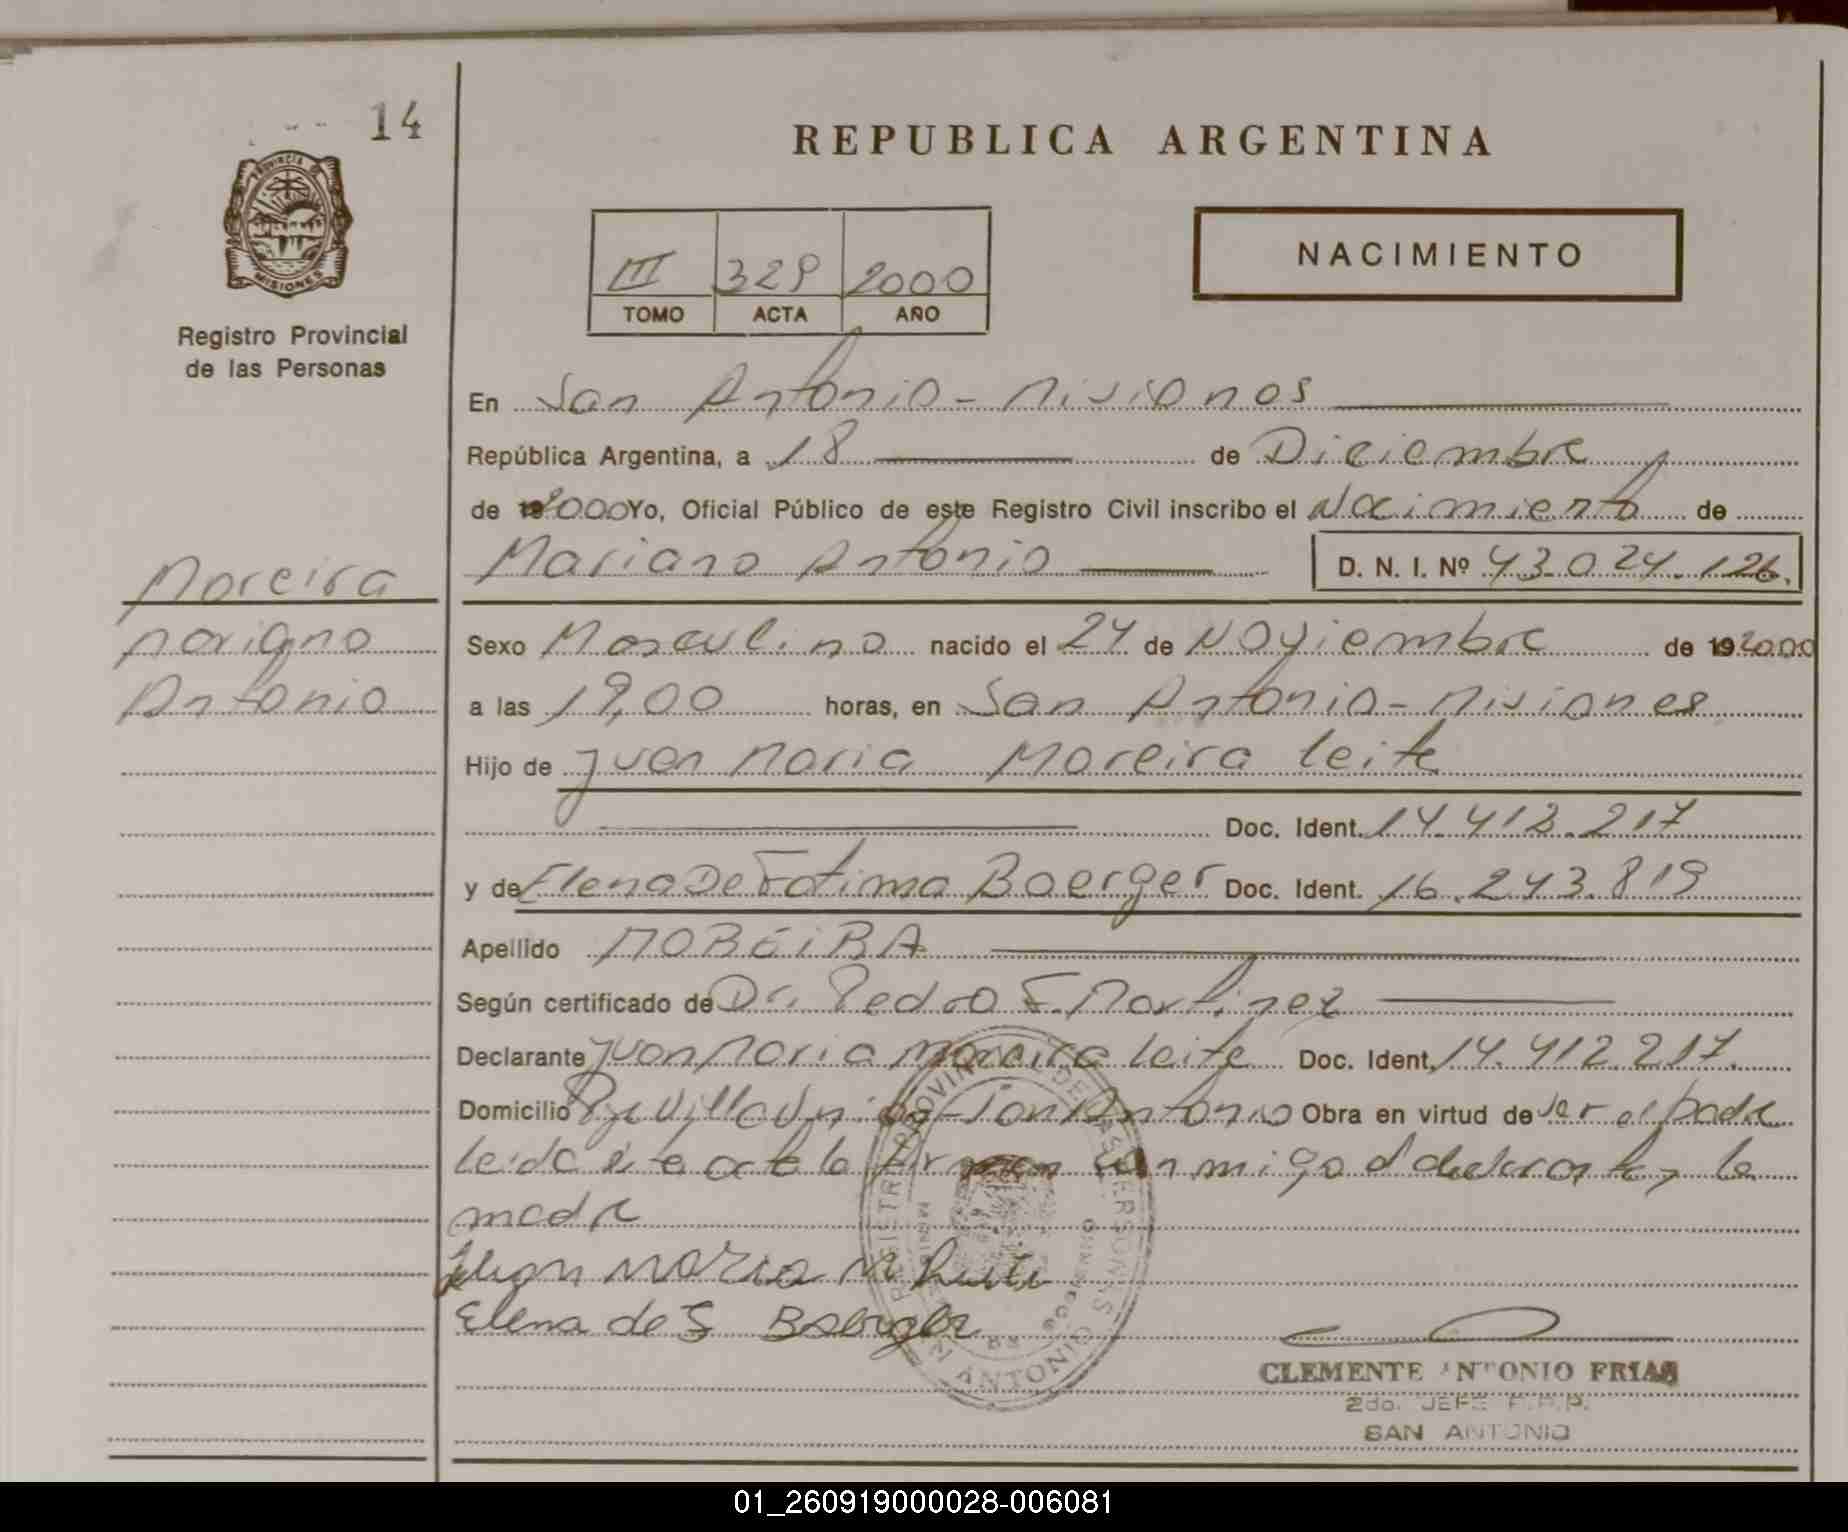 14
REPUBLICA ARGENTINA
PROVINCIA DE
MISIONES
Registro Provincial
de las Personas
III 329 2000
TOMO ACTA AÑO
NACIMIENTO
En San Antonio - Misiones
República Argentina, a 18 de Diciembre
de 2000 Yo, Oficial Público de este Registro Civil inscribo el Nacimiento de
Mariano Antonio D. N. I. Nº 43.024.126.
Moreira
Mariano
Antonio
Sexo Masculino nacido el 24 de Noviembre de 19 2000
a las 19,00 horas, en San Antonio - Misiones
Hijo de Juan Maria Moreira Leite
Doc. Ident. 14.412.217
y de Elena De Fatima Boerger Doc. Ident. 16.243.819
Apellido MOREIRA
Según certificado de Dr. Pedro F. Martinez
Declarante Juan Maria Moreira Leite Doc. Ident. 14.412.217.
Domicilio Villa Unión - San Antonio Obra en virtud de ser el padre
leida el acta la firman conmigo el declarante y la
madre
Juan Maria M Leite
Elena de F Boerger
REGISTRO PROVINCIAL DE LAS PERSONAS
SAN ANTONIO
CLEMENTE ANTONIO FRIAS
2do. JEFE R.P.P.
SAN ANTONIO
01_260919000028-006081